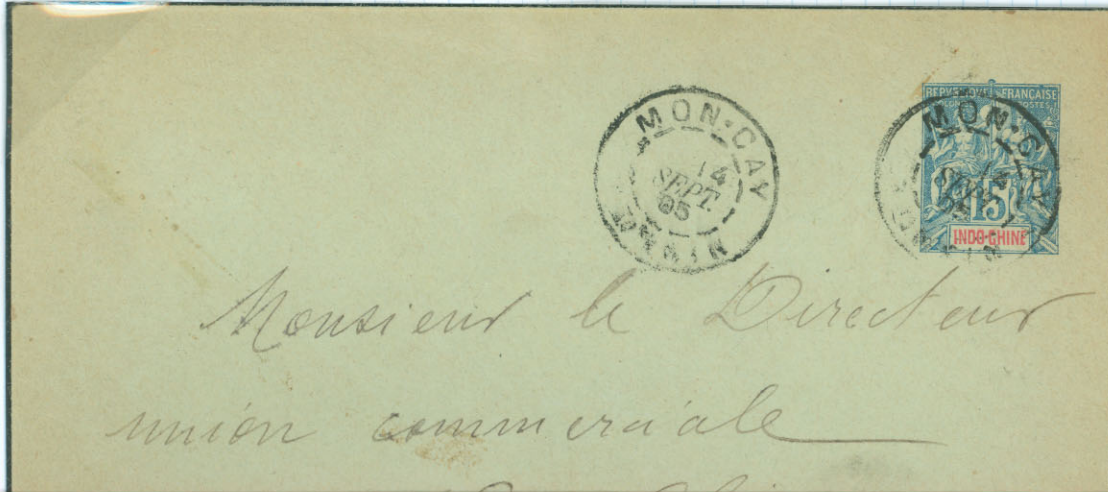 MON-CAY
14
SEPT.
05
TONKIN
REPUBLIQUE FRANÇAISE
POSTES
MON-CAY
14
SEPT.
05
15
INDO-CHINE
Monsieur le Directeur
union commerciale